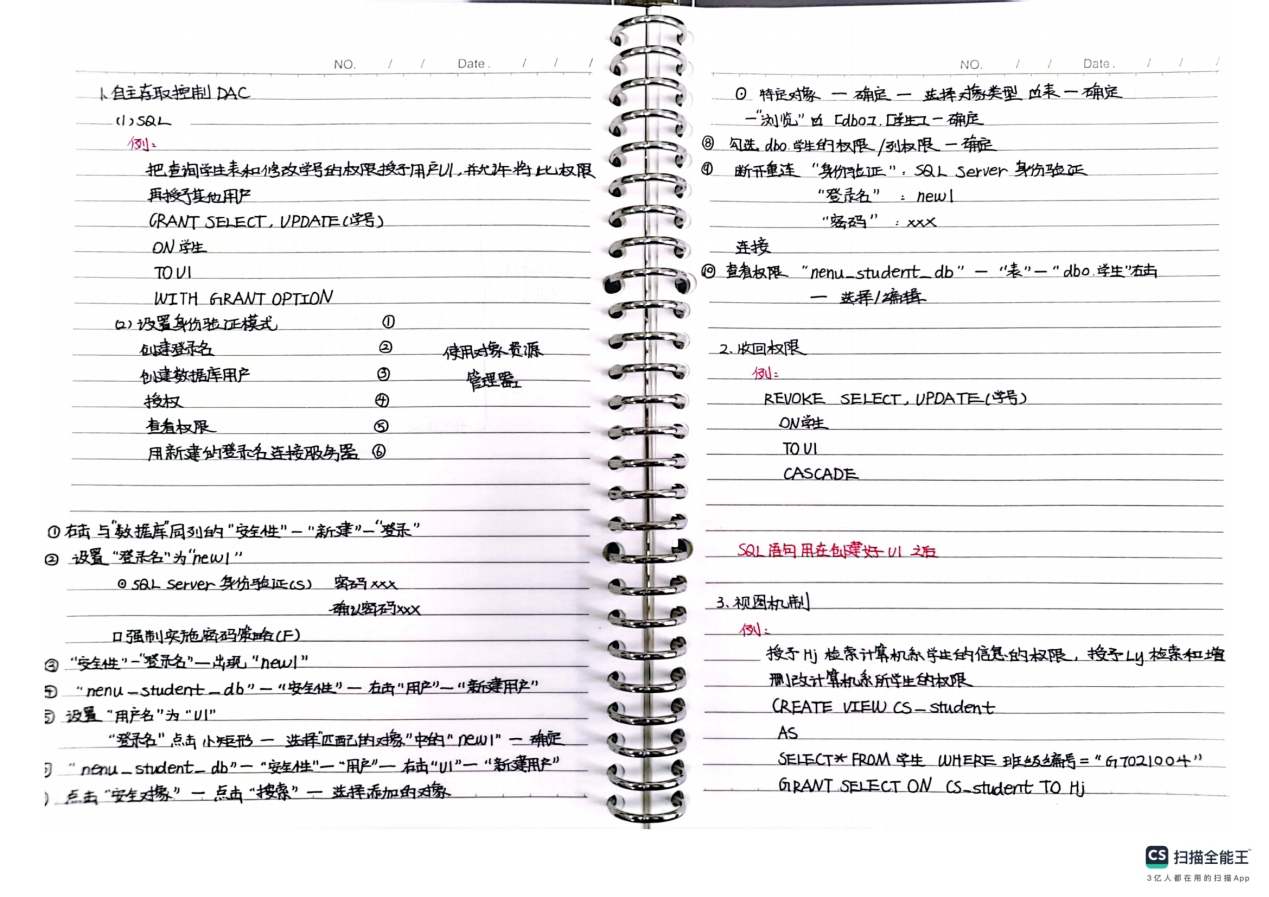 NO. / / Date. / / /
1. 自主存取控制 DAC
(1) SQL
例:
把查询学生表和修改学号的权限授予用户U1,并允许将此权限
再授予其他用户
GRANT SELECT, UPDATE(学号)
ON 学生
TO U1
WITH GRANT OPTION
(2) 设置身份验证模式 ①
创建登录名 ②
创建数据库用户 ③
授权 ④
查看权限 ⑤
用新建的登录名连接服务器 ⑥
使用对象资源
管理器
① 右击 与"数据库"同列的"安全性"—"新建"—"登录"
② 设置"登录名"为"new1"
⊙ SQL Server 身份验证(S) 密码 xxx
确认密码xxx
□ 强制实施密码策略(F)
③ "安全性"—"登录名"—出现"new1"
④ "nenu_student_db"—"安全性"— 右击"用户"—"新建用户"
⑤ 设置"用户名"为"U1"
"登录名"点击小矩形 — 选择"匹配的对象"中的"new1" — 确定
"nenu_student_db"—"安全性"—"用户"— 右击"U1"—"新建用户"
点击"安全对象" — 点击"搜索" — 选择添加的对象
NO. / / Date. / / /
⊙ 特定对象 — 确定 — 选择对象类型 ☑表 — 确定
—"浏览" ☑ [dbo].[学生]—确定
⑧ 勾选 dbo.学生的权限/列权限 — 确定
⑨ 断开重连 "身份验证": SQL Server 身份验证
"登录名" : new1
"密码" : xxx
连接
⑩ 查看权限 "nenu_student_db" — "表"—"dbo.学生"右击
— 选择/编辑
2. 收回权限
例:
REVOKE SELECT, UPDATE(学号)
ON 学生
TO U1
CASCADE
SQL语句用在创建好 U1 之后
3. 视图机制
例:
授予Hj 检索计算机系学生的信息的权限,授予Ly 检索和增
删改计算机系所学生的权限
CREATE VIEW CS_student
AS
SELECT * FROM 学生 WHERE 班级编号="GT021004"
GRANT SELECT ON CS_student TO Hj
CS 扫描全能王
3亿人都在用的扫描App